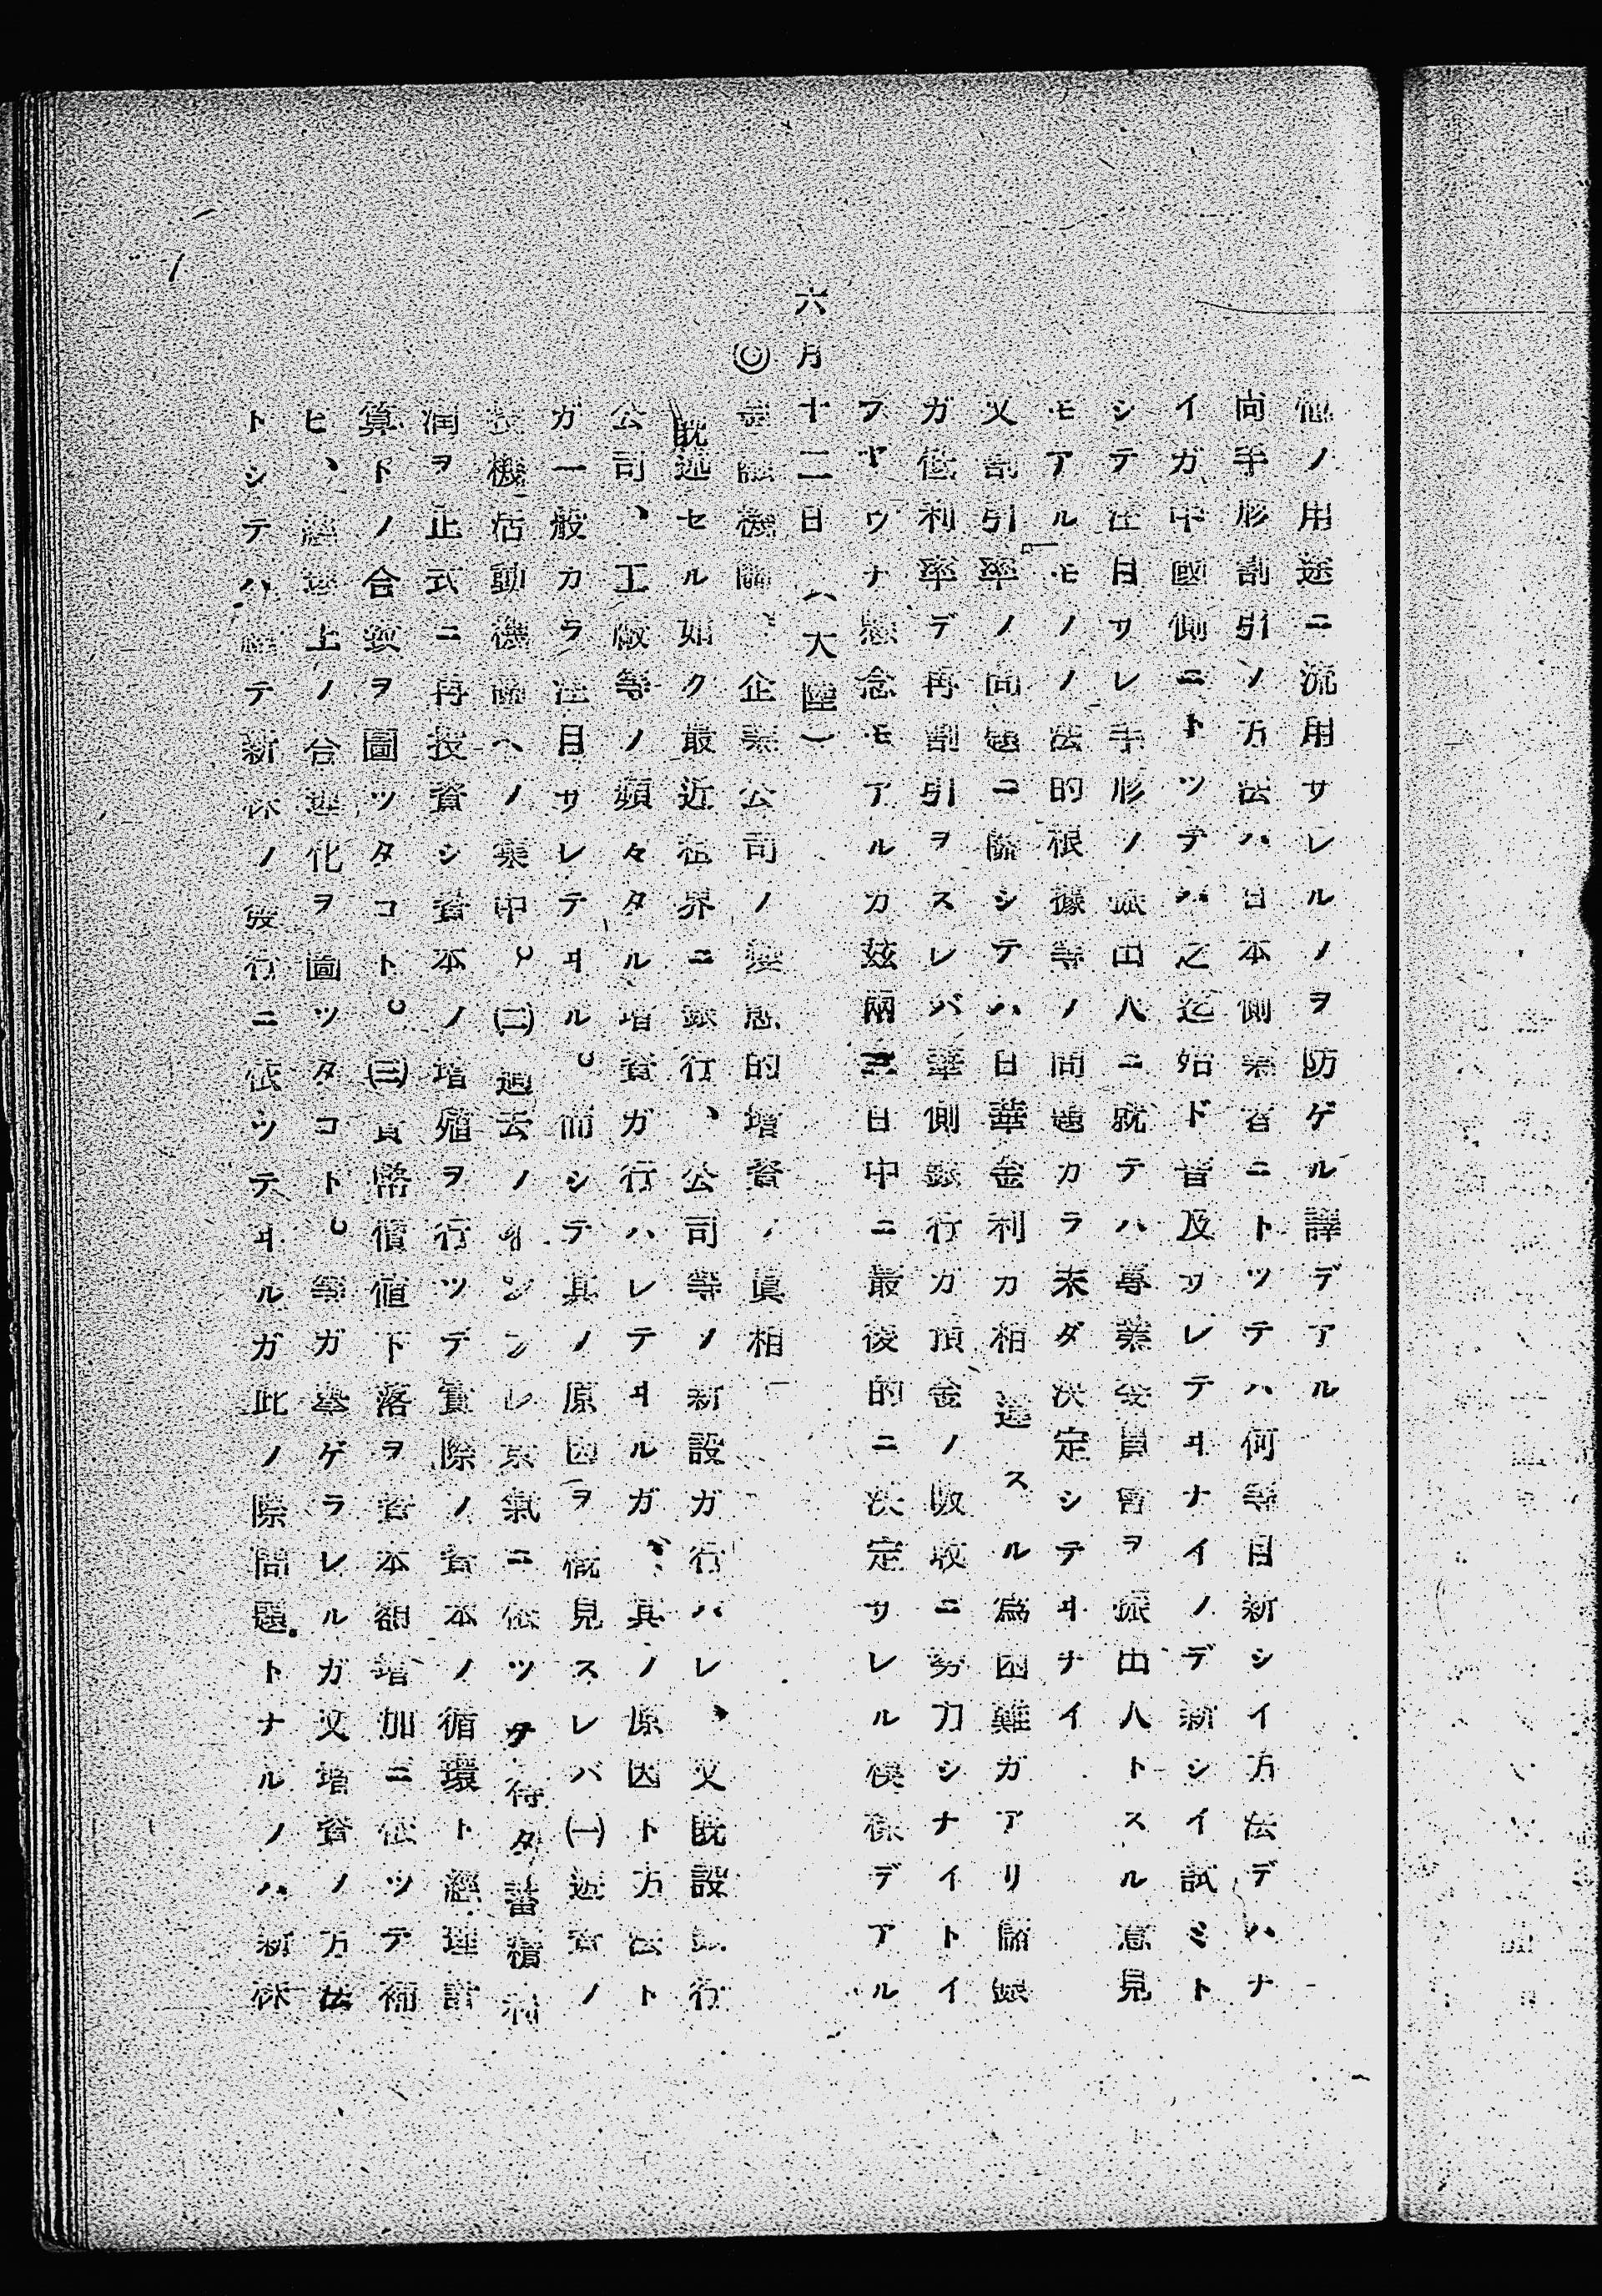 他ノ用途ニ流用サレルノヲ防ゲル譯デアル
尚手形割引ノ方法ハ日本側業者ニトツテハ何等目新シイ方法デハナ
イガ中國側ニトツテハ之迄殆ド普及サレテヰナイノデ新シイ試ミト
シテ注目サレ手形ノ振出人ニ就テハ專業委員會ヲ振出人トスル意見
モアルモノノ法的根據等ノ問題カラ未ダ決定シテヰナイ
又割引率ノ問題ニ關シテハ日華金利カ相違スル爲困難ガアリ儲銀
ガ低利率デ再割引ヲスレバ華側銀行カ頂金ノ吸收ニ努力シナイトイ
フヤウナ懸念モアルカ玆兩三日中ニ最後的ニ決定サレル模樣デアル
六月十二日（大陸）
◎金融機關、企業公司ノ變態的增資ノ眞相
既述セル如ク最近祖界ニ銀行、公司等ノ新設ガ行ハレ、又既設銀行
公司、工廠等ノ頻々タル增資ガ行ハレテヰルガ、其ノ原因ト方法ト
ガ一般カラ注目サレテヰル。而シテ其ノ原因ヲ槪見スレバ㈠遊資ノ
投機活動機關ヘノ集中。㈡過去ノインフレ景氣ニ依ツテ得タ蓄積利
潤ヲ正式ニ再投資シ資本ノ增殖ヲ行ツテ實際ノ資本ノ循環ト經理計
算トノ合致ヲ圖ツタコト。㈢貨幣價値下落ヲ資本額增加ニ依ツテ補
ヒ、經理上ノ合理化ヲ圖ツタコト。等ガ擧ゲラレルガ又增資ノ方法
トシテハ總テ新株ノ發行ニ依ツテヰルガ此ノ際問題トナルノハ新株